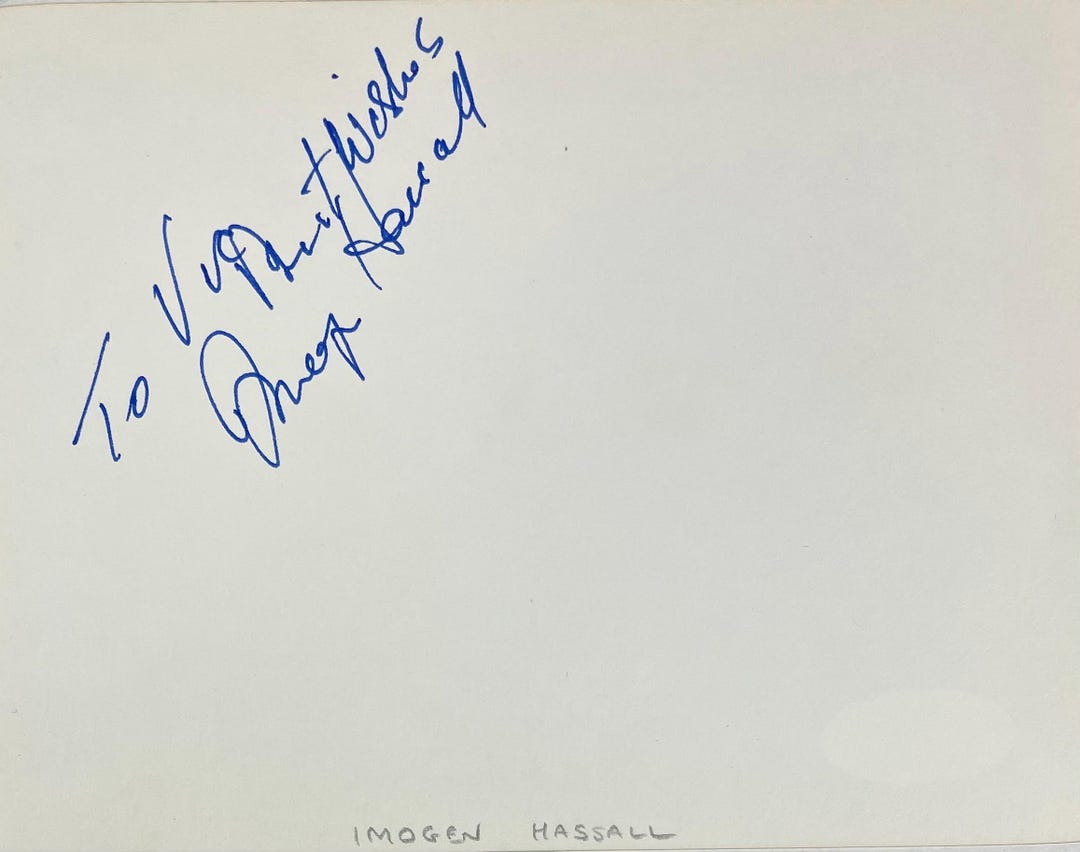 To Viv Best Wishes
Imogen Hassall
IMOGEN HASSALL